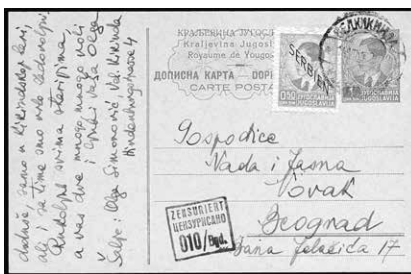 dodnic, samo u Kikindskoj
ali i sa time smo vrlo zadovoljni
svima starijima,
a vas dve mnogo, mnogo voli
i ljubi vaša Olga
Šalje: Olga Simonović, Vel. Kikinda
Hindenburgova 4
КРАЉЕВИНА ЈУГОСЛ
Kraljevina Jugosl
Royaume de Yougos
ДОПИСНА КАРТА — DOPI
CARTE POSTA
SERBIEN
0.50
ЈУГОСЛАВИЈА
JUGOSLAVIJA
ЈУГОСЛАВИЈА
JUGOSLAVIJA
Gospodice
Nada i Jasna
Novak
Beograd
Bana Jelačića 17
ZENSURIERT
ЦЕНЗУРИСАНО
010/Bgd.